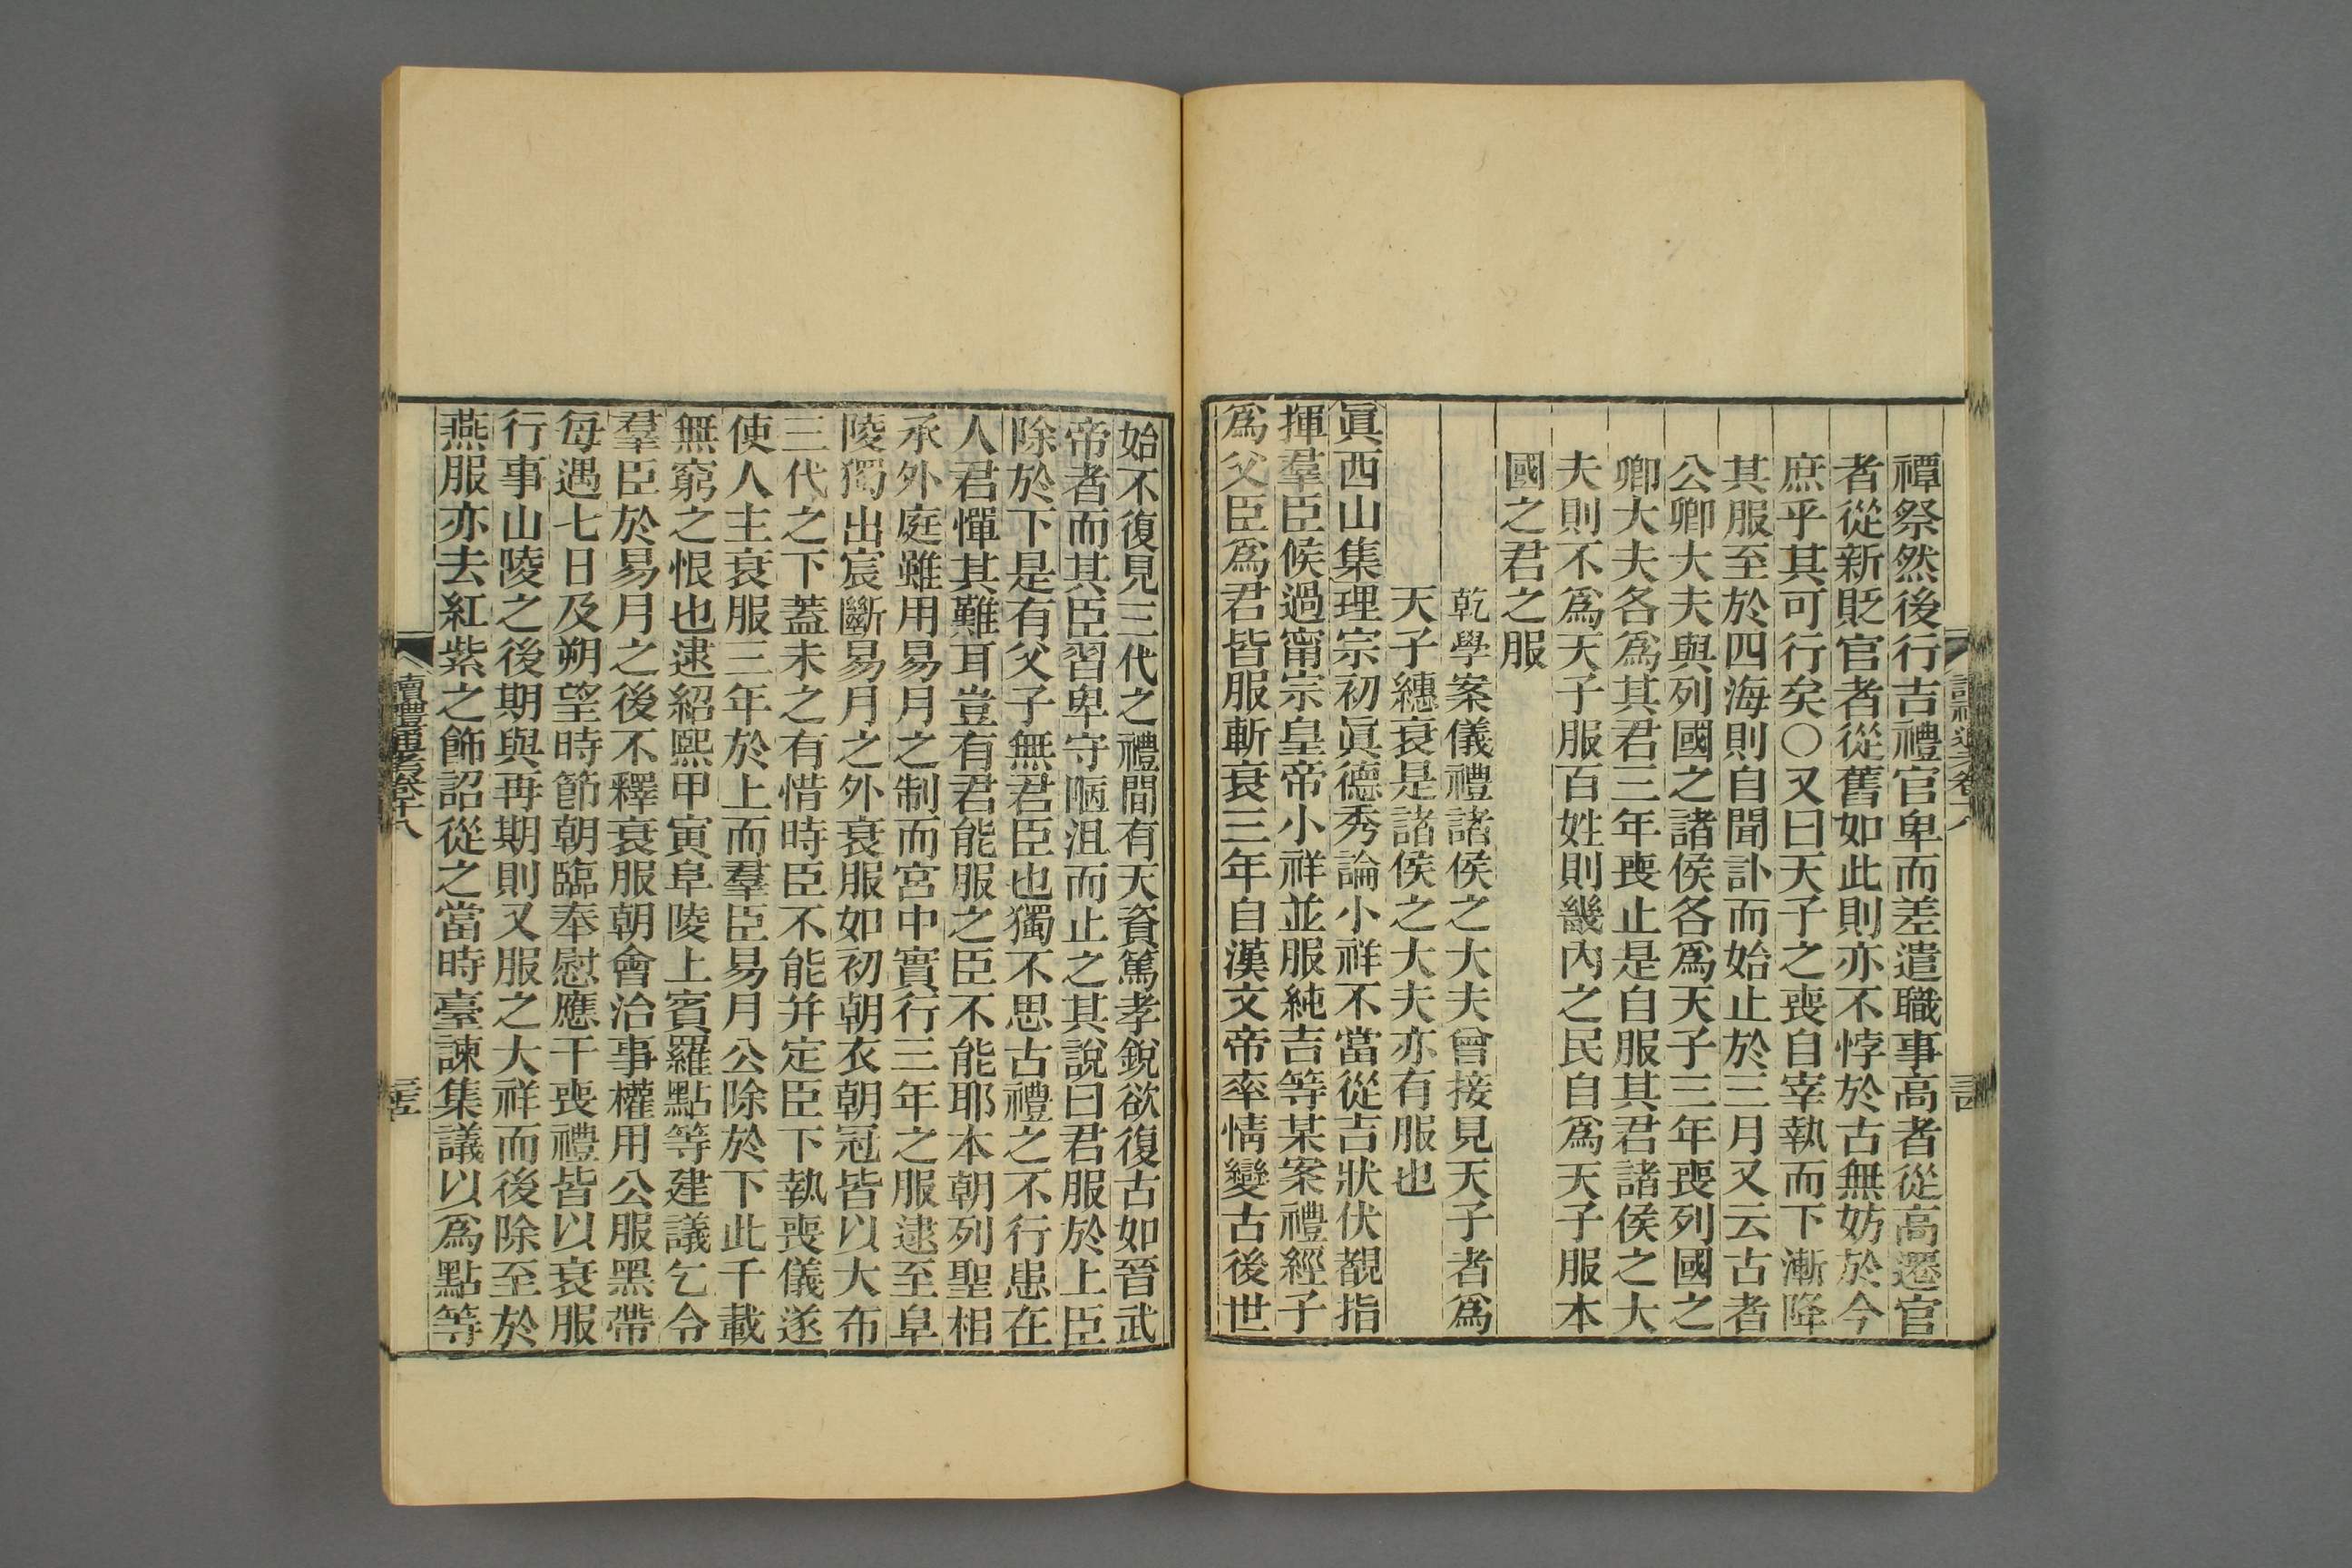 禫祭然後行吉禮官卑而差遣職事高者從高遷官
者從新貶官者從舊如此則亦不悖於古無妨於今
庶乎其可行矣○又曰天子之喪自宰執而下漸降
其服至於四海則自聞訃而始止於三月又云古者
公卿大夫與列國之諸侯各爲天子三年喪列國之
卿大夫各爲其君三年喪止是自服其君諸侯之大
夫則不爲天子服百姓則畿內之民自爲天子服本
國之君之服
乾學案儀禮諸侯之大夫曾接見天子者爲
天子繐衰是諸侯之大夫亦有服也
眞西山集理宗初眞德秀論小祥不當從吉狀伏覩指
揮羣臣候過甯宗皇帝小祥並服純吉等某案禮經子
爲父臣爲君皆服斬衰三年自漢文帝率情變古後世
始不復見三代之禮間有天資篤孝銳欲復古如晉武
帝者而其臣習卑守陋沮而止之其說曰君服於上臣
除於下是有父子無君臣也獨不思古禮之不行患在
人君憚其難耳豈有君能服之臣不能耶本朝列聖相
承外庭雖用易月之制而宮中實行三年之服逮至阜
陵獨出宸斷易月之外衰服如初朝衣朝冠皆以大布
三代之下蓋未之有惜時臣不能并定臣下執喪儀遂
使人主衰服三年於上而羣臣易月公除於下此千載
無窮之恨也逮紹熙甲寅阜陵上賓羅點等建議乞令
羣臣於易月之後不釋衰服朝會治事權用公服黑帶
每遇七日及朔望時節朝臨奉慰應干喪禮皆以衰服
行事山陵之後期與再期則又服之大祥而後除至於
燕服亦去紅紫之飾詔從之當時臺諫集議以爲點等
讀禮通考卷十八